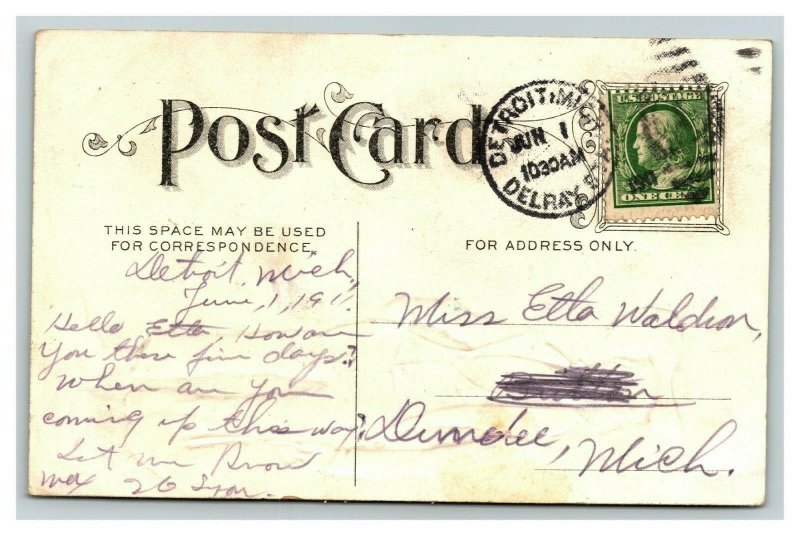 Post Card
DETROIT, MICH.
JUN 1
1030AM
DELRAY
U.S. POSTAGE
ONE CENT
THIS SPACE MAY BE USED
FOR CORRESPONDENCE.
FOR ADDRESS ONLY.
Detroit, Mich,
June, 1, 191
Hello Etta, How are
You these fine days?
When are you
coming up this way?
Let me know
Miss Etta Waldron,
Dundee,
Mich.